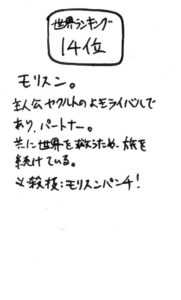 世界ランキング
14位
モリスン。
主人公ヤクルトのよきライバルで
あり、パートナー。
共に世界を救うため、旅を
続けている。
必殺技：モリスンパンチ！